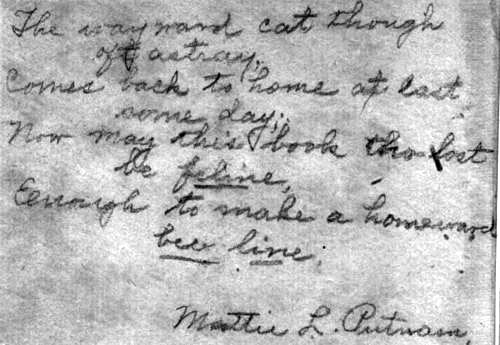 The wayward cat though
oft astray,
Comes back to home at last
some day;
Now may this book tho lost
be feline,
Eenough to make a homeward
bee line.
Mattie L. Putnam,